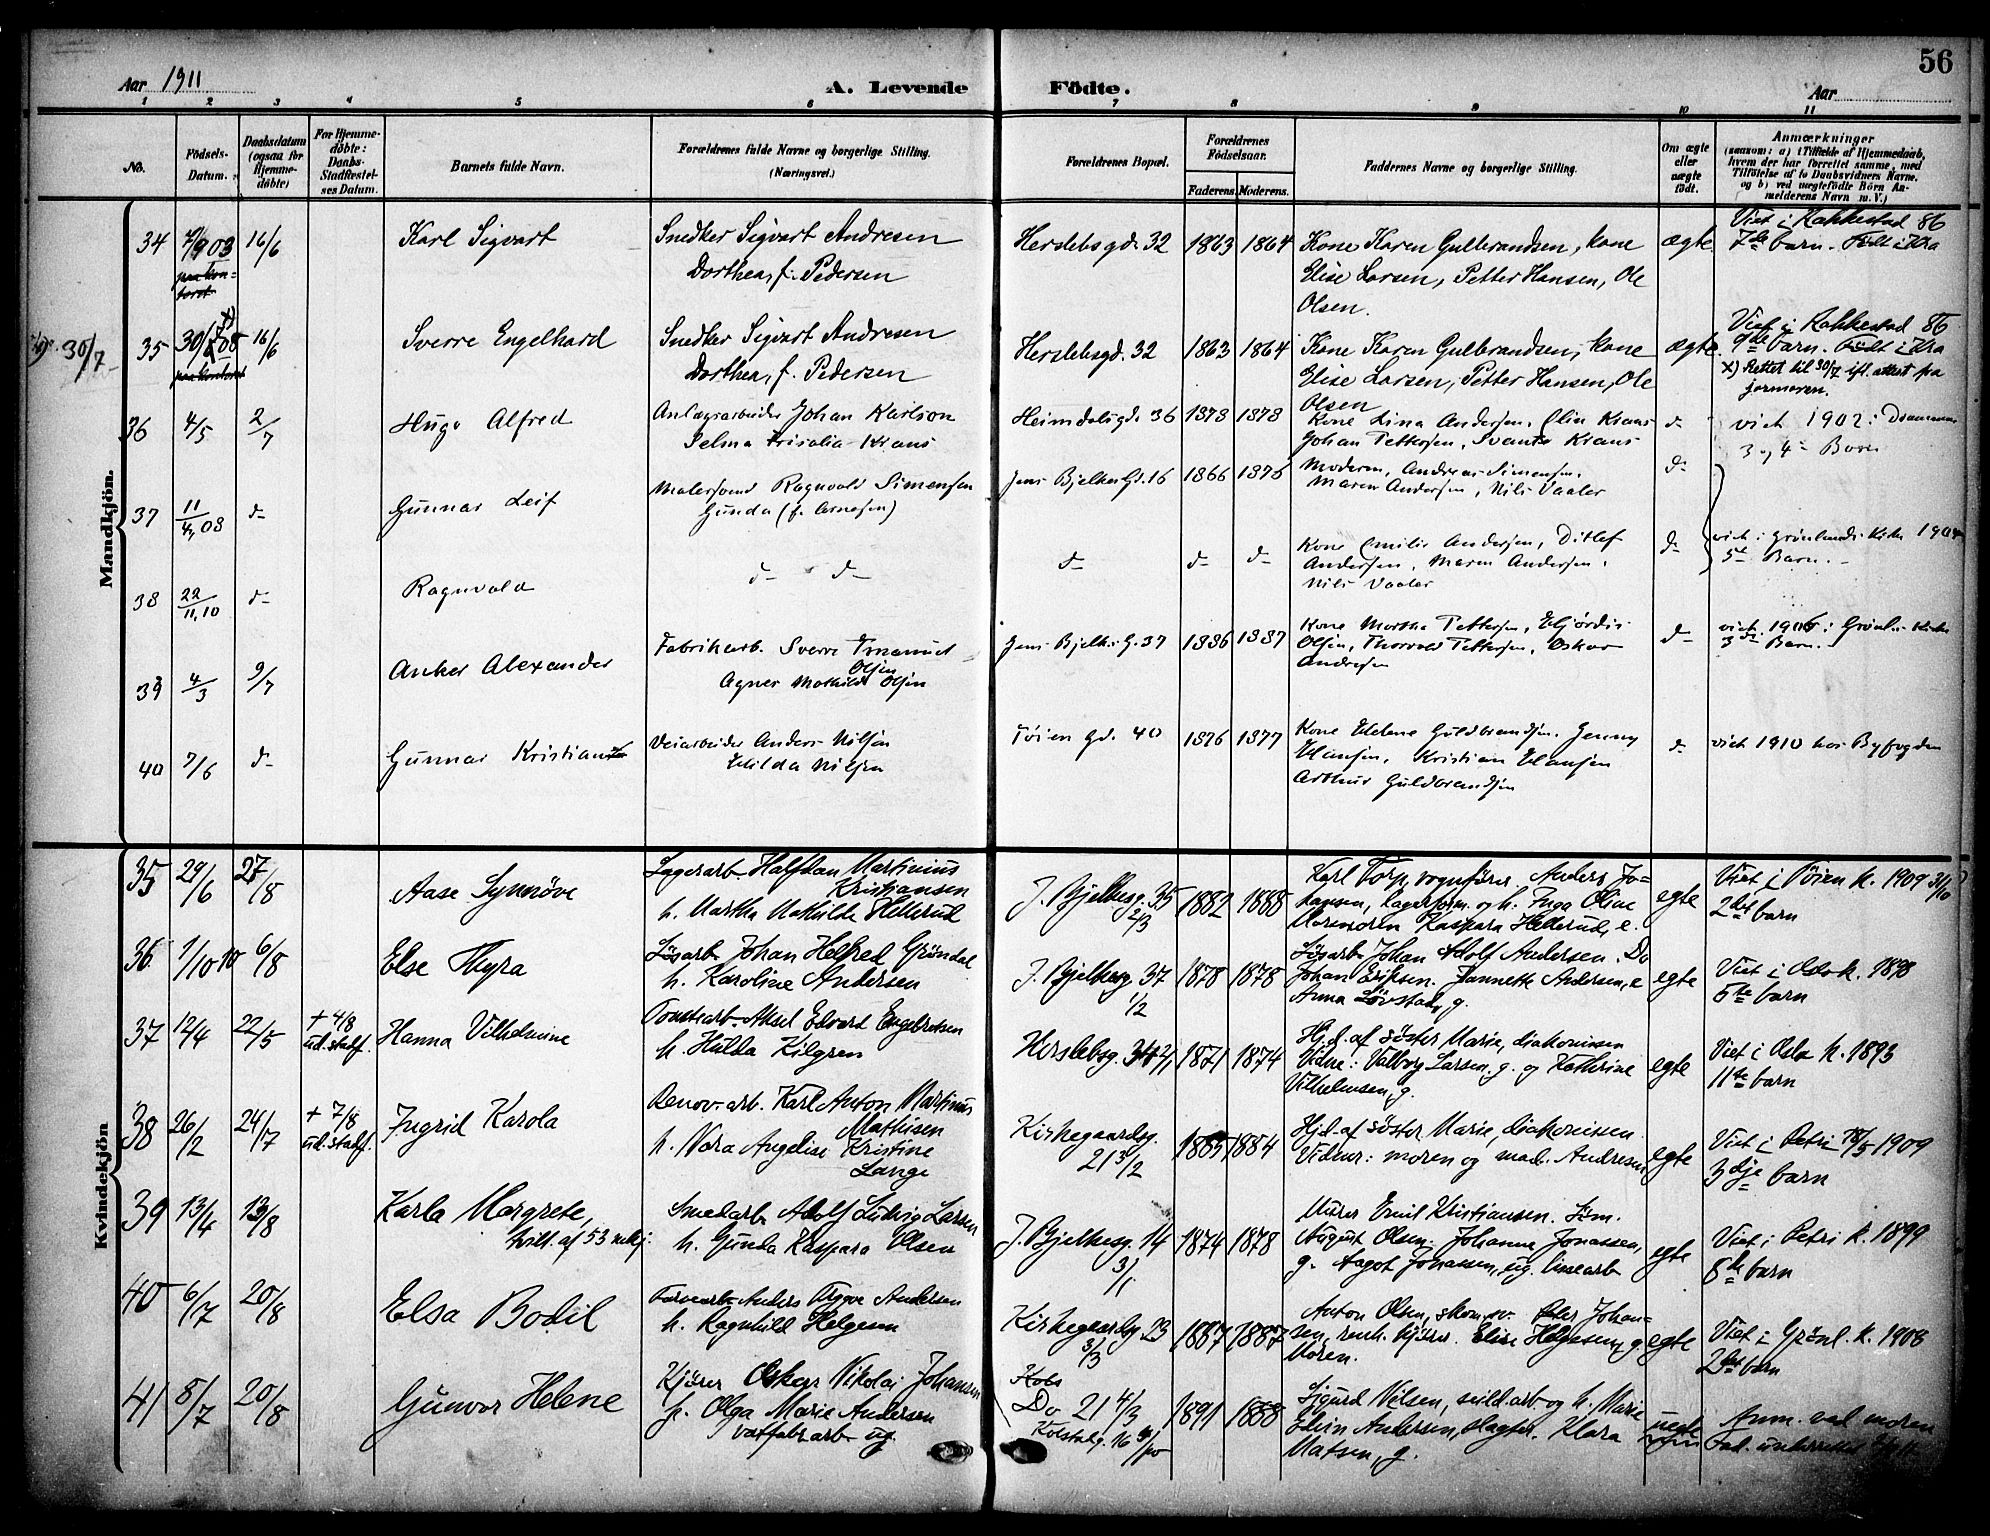 56
Aar 1911
A. Levende Födte.
Aar
1 2 3 4 5 6 7 8 9 10 11
No.
Födsels-Datum.
Daabsdatum (ogsaa for Hjemme-döbte)
For Hjemme-döbte: Daabs-Stadfæstel-ses Datum.
Barnets fulde Navn.
Forældrenes fulde Navne og borgerlige Stilling. (Næringsvei.)
Forældrenes Bopæl.
Forældrenes Födselsaar.
Faderens. Moderens.
Faddernes Navne og borgerlige Stilling.
Om ægte eller uægte födt.
Anmærkninger
(saasom: a) i Tilfælde af Hjemmedaab, hvem der har forrettet samme, med Tilföielse af to Daabsvidners Navne. og b) ved uægtefödte Börn Anmelderens Navn m. V.)
Mandkjön.
34 16/6 Karl Sigvart
Snedker Sigvart Andresen
Dorthea, f. Pedersen
Herslebsgd. 32 1863 1864
Kone Karen Gulbrandsen, kone
Elise Larsen, Petter Hansen, Ole
Olsen.
ægte
Viet i Rakkestad 86
7de barn. Födt i Kra
30/7
35 16/6 Sverre Engelhard
Snedker Sigvart Andresen
Dorthea, f. Pedersen
Herslebsgd. 32 1863 1864
Kone Karen Gulbrandsen, kone
Elise Larsen, Petter Hansen, Ole
Olsen
ægte
Viet i Rakkestad 86
9de barn. Födt i Kra
x) Rettet til 30/7 ifl. attest fra
jormoren.
36 4/5 2/7 Hugo Alfred
Johan Karlson
Selma
Heimdalsgd. 36 1878 1878
Kone Lina Andersen, Olin Kraus
Johan Pettersen, Svante Kraus
d-
viet 1902 i Drammen
3 og 4de Barn
37 11/4,08 d- Gunnar Leif
Malersvend Ragnvald Simensen
Gunda (f. Arnesen)
Jens Bjelkes Gd. 16 1866 1875
Moderen, Andreas Simensen,
Maren Andersen, Nils Vaaler
d-
38 22/11,10 d- Ragnvald
d- d-
d- d- d-
Kone Emilie Andersen, Ditlef
Andersen, Maren Andersen,
Nils Vaaler
d-
viet i Grönlands Kirke 1904
5te Barn.
39 4/3 9/7 Anker Alexander
Fabrikarb. Sverre Emanuel
Olsen
Agnes Mathilde Olsen
Jens Bjelkes G. 37 1886 1887
Kone Martha Pettersen, Hjördis
Olsen, Thorvald Pettersen, Oskar
Andresen
d-
viet 1905 i Grönl. Kirke
3die Barn.
40 7/6 d- Gunnar Kristian
Veiarbeider Anders Nilsen
Hilda Nilsen
Töien gd. 40 1876 1877
Kone Helene Guldbrandsen. Jenny
Hansen, Kristian Hansen
Arthur Guldbrandsen
d-
viet 1910 hos Byfogden
Kvindekjön
35 29/6 27/8 Aase Synnöve
Lagerarb. Halfdan Martinius
Kristiansen
h. Martha Mathilde Hellerud
J. Bjelkesg. 35 2/3 1882 1888
Karl Torp, vognförer. Anders Jo-
hansen, Lagerform. og h. Inga Oline
Mormoren Kaspara Hellerud, e.
egte
Viet i Töien k. 1909 31/10
2det barn
36 1/10 10 6/8 Else Thyra
Lösarb. Johan Helfred Gröndal
h. Karoline Andersen
J. Bjelkesg. 37 1/2 1878 1878
Lösarb. Johan Adolf Andersen. Do
Johan Eriksen. Jannette Andersen, e
Anna Lövstad, g.
egte
Viet i Oslo k. 1898
5te barn
37 12/4 22/5 + 4/8 ud. stadf. Hanna Vilhelmine
Tomtearb. Aksel Edvard Engebretsen
h. Hulda Kilgren
Herslebsg. 34 2/1 1871 1874
Hj.d. af söster Marie, diakonissen
Vidne: Valborg Larsen, g. og Kathrine
Vilhelmsen, g.
egte
Viet i Oslo k. 1893
11te barn
38 26/2 24/7 + 7/8 ud. stadf. Ingrid Karola
Renov. arb. Karl Anton Martinus
Mathisen
h. Nora Angelise Kristine
Lange
Kirkegaardsg.
21 3/2 1885 1884
Hj.d. af söster Marie, diakonissen
Vidner: moren og mad. Andresen
egte
Viet i Petri 18/5 1909
3dje barn
39 13/4 13/8 Karla Margrete,
hvilt. af 53
Smedarb. Adolf Ludvig Larsen
h. Gunda Kaspara Olsen
J. Bjelkesg. 14 3/1 1874 1878
Murer Emil Kristiansen. Söm.
August Olsen. Johanne Jonassen,
g. Aagot Jonassen, ug. linearb
egte
Viet i Petri k. 1899
8de barn
40 6/7 20/8 Elsa Bodil
Farvearb. Anders Trygve Andersen
h. Ragnhild Helgesen
Kirkegaardsg. 23 3/3 1887 1887
Anton Olsen, skom.sv. Peder Johan-
sen, renh. kjörer. Elise Helgesen, g
Moren.
egte
Viet i Grönl. k. 1908
2det barn
41 8/7 20/8 Gunvor Helene
Kjörer Oskar Nikolai Johansen
p. Olga Marie Andersen
vatfabr.arb. ug.
Do 21 4/3 1891 1888
Sigurd Nilsen, seild.arb og h. Marie
Edvin Andersen, slagter. Klara
Matsen, g.
uegte
Anm. ved moren